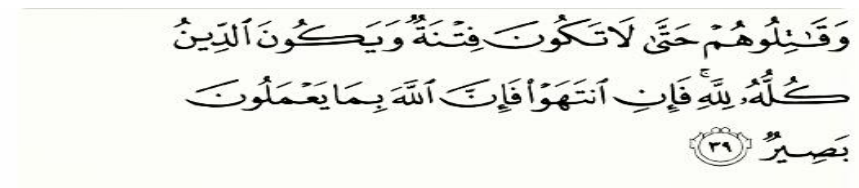 وَقَٰتِلُوهُمۡ حَتَّىٰ لَا تَكُونَ فِتۡنَةٞ وَيَكُونَ ٱلدِّينُ
كُلُّهُۥ لِلَّهِۚ فَإِنِ ٱنتَهَوۡاْ فَإِنَّ ٱللَّهَ بِمَا يَعۡمَلُونَ
بَصِيرٞ ٣٩